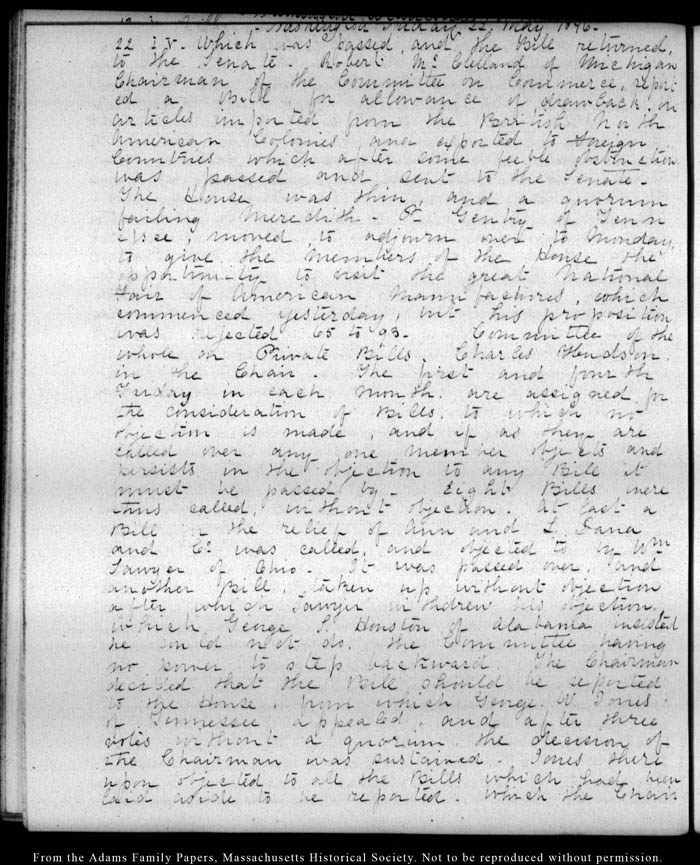 Washington Friday 22. May 1846.
22. IV. Which was passed, and the Bill returned,
to the Senate. Robert Mc. Clelland of Michigan
Chairman of the Committee on Commerce, report-
ed a Bill for allowance of drawback on
articles imported from the British North
American Colonies and exported to Foreign
Countries which after some feeble obstruction
was passed and sent to the Senate.
The House was thin, and a quorum
failing Meredith. P. Gentry of Tenn
essee, moved, to adjourn over to Monday,
to give the members of the House the
opportunity to visit the great National
Fair of American Manufactures, which
commenced yesterday, but his proposition
was rejected 65 to 93. Committee of the
whole on Private Bills, Charles Hudson.
in the Chair. The first and fourth
Friday in each month. are assigned for
the consideration of Bills. to which no
objection is made, and if as they are
called over any one member objects and
persists in the objection to any Bill it
must be passed by. Eight Bills were
thus called, without objection. At last a
Bill for the relief of Ann and L Dana
and Co. was called, and objected to by Wm
Sawyer of Ohio. It was passed over, and
another Bill, taken up without objection
after which Sawyer withdrew his objection.
Which George S. Houston of Alabama insisted
he could not do. the Committee having
no power to step backward. The Chairman
decided that the Bill should be reported
to the House, from which George. W. Jones.
of Tennessee appealed, and after three
votes without a quorum, the decision of
the Chairman was sustained. Jones there
upon objected to all the Bills which had been
laid aside to be reported. Which the Chair
From the Adams Family Papers, Massachusetts Historical Society. Not to be reproduced without permission.